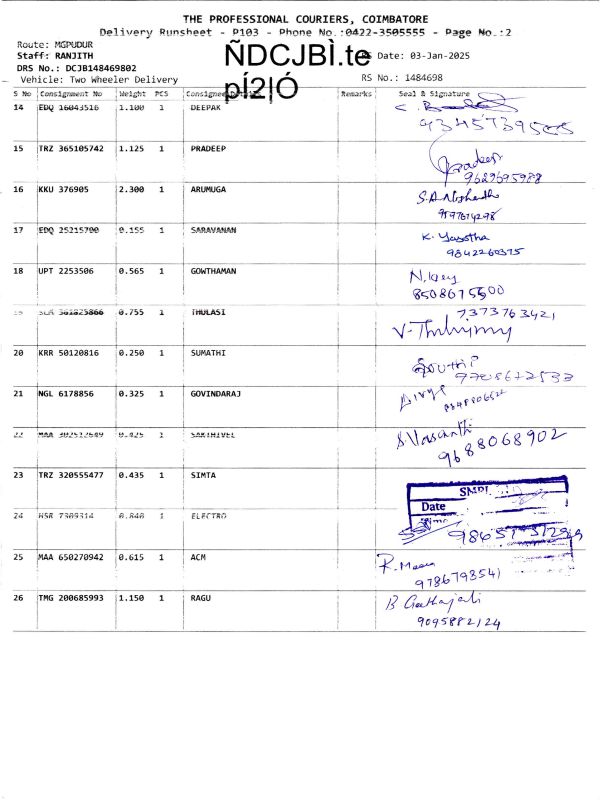 THE PROFESSIONAL COURIERS, COIMBATORE
Delivery Runsheet - P103 - Phone No.:0422-3505555 - Page No.:2
Route: MGPUDUR
Staff: RANJITH
DRS No.: DCJB148469802
Vehicle: Two Wheeler Delivery
ÑDCJBÌ.te
pÍ2|Ó
Date: 03-Jan-2025
RS No.: 1484698
S No Consignment No Weight PCS Consignee Remarks Seal & Signature
14 EDQ 16043516 1.100 1 DEEPAK
15 TRZ 365105742 1.125 1 PRADEEP Pradeep
9629695988
16 KKU 376905 2.300 1 ARUMUGA
9597614298
17 EDQ 25215790 0.155 1 SARAVANAN K. Yasotha
9842260375
18 UPT 2253506 0.565 1 GOWTHAMAN
8508615500
19 361825866 0.755 1 THULASI 7373763421
20 KRR 50120816 0.250 1 SUMATHI
21 NGL 6178856 0.325 1 GOVINDARAJ Divya
22 MAA 302512649 0.425 1 SAKTHIVEL S. Vasanthi
9688068902
23 TRZ 320555477 0.435 1 SIMTA
Date
24 HSR 7309314 0.840 1 ELECTRO
25 MAA 650270942 0.615 1 ACM R. Meena
9786793541
26 TMG 200685993 1.150 1 RAGU B
9095882124